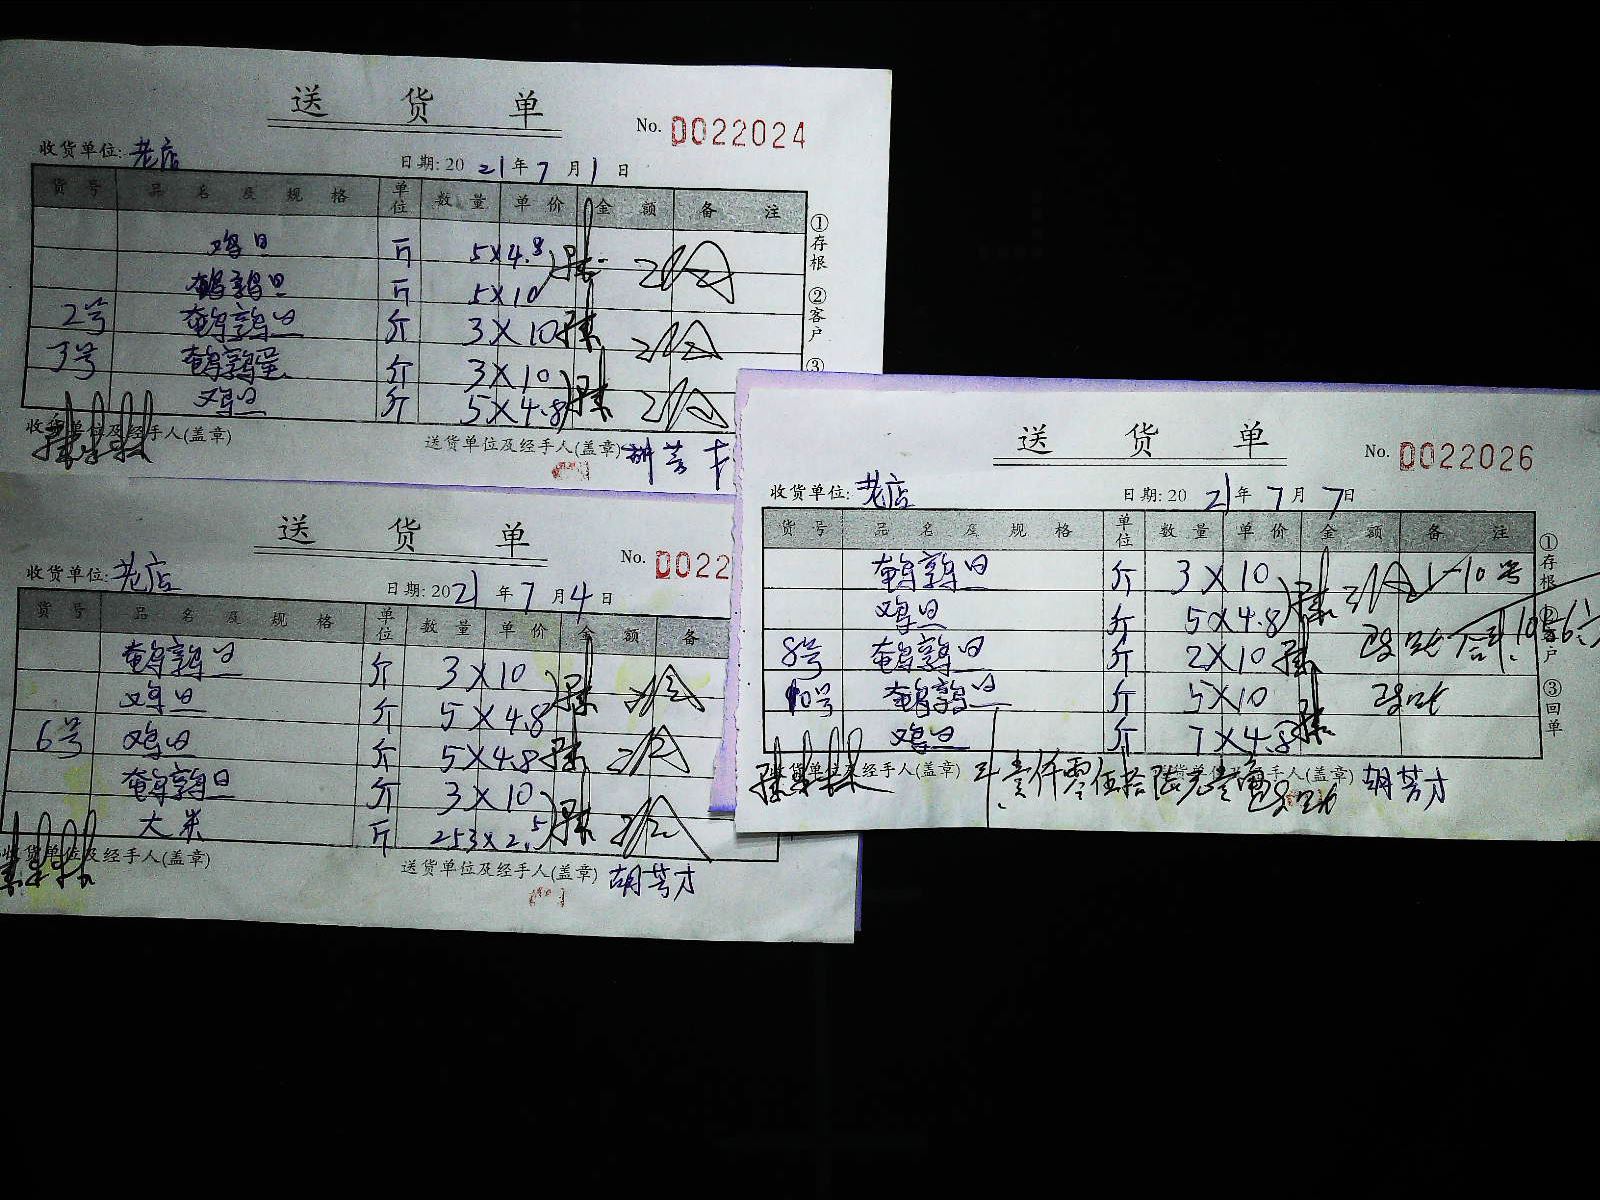 送 货 单
No. 0022024
收货单位: 老店
日期: 2021年7月1日
货 号 品 名 及 规 格 单位 数 量 单 价 金 额 备 注
鸡旦 斤 5×4.8
鹌鹑旦 斤 5×10
2号 鹌鹑旦 斤 3×10
3号 鹌鹑蛋 斤 3×10
鸡旦 斤 5×4.8
收货单位及经手人(盖章)
送货单位及经手人(盖章) 胡芳才
①存根
②客户
③
送 货 单
No. 0022
收货单位: 老店
日期: 2021年7月4日
货 号 品 名 及 规 格 单位 数 量 单 价 金 额 备
鹌鹑旦 斤 3×10
鸡旦 斤 5×4.8
6号 鸡旦 斤 5×4.8
鹌鹑旦 斤 3×10
大米 斤 253×2.5
收货单位及经手人(盖章)
送货单位及经手人(盖章) 胡芳才
送 货 单
No. 0022026
收货单位: 老店
日期: 2021年7月7日
货 号 品 名 及 规 格 单位 数 量 单 价 金 额 备 注
鹌鹑旦 斤 3×10 1-10号
鸡旦 斤 5×4.8
8号 鹌鹑旦 斤 2×10 合计
10号 鹌鹑旦 斤 5×10
鸡旦 斤 7×4.8
收货单位及经手人(盖章) 壹仟零伍拾陆元壹角
送货单位及经手人(盖章) 胡芳才
①存根
②客户
③回单